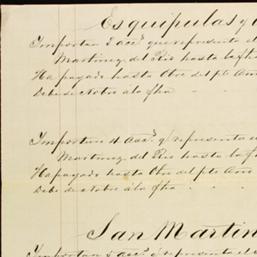 Esquipulas y
Importan 5 acc.s que representa el
Martinez del Rio hasta la fha
Ha pagado hasta Obre del pte Año
Debe de Nobre á la fha
Importan 4 Acc.s q/ representa el
Martinez del Rio hasta la f
Ha pagado hasta Obre del pte Ano
Debe de Nobre á la fha
San Martin
Importan 5 acc.s q/ representa el